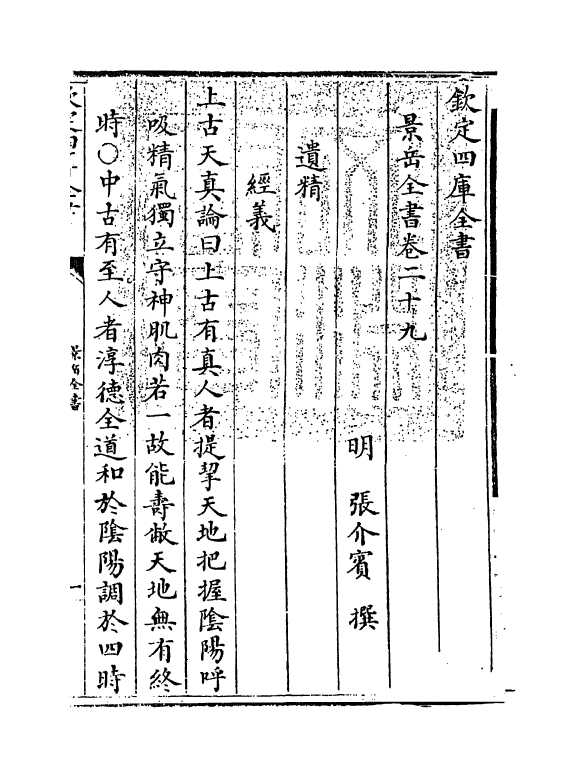 欽定四庫全書
景岳全書卷二十九
明 張介賓 撰
遺精
經義
上古天真論曰上古有真人者提挈天地把握陰陽呼
吸精氣獨立守神肌肉若一故能壽敝天地無有終
時○中古有至人者淳德全道和於陰陽調於四時
景岳全書
一